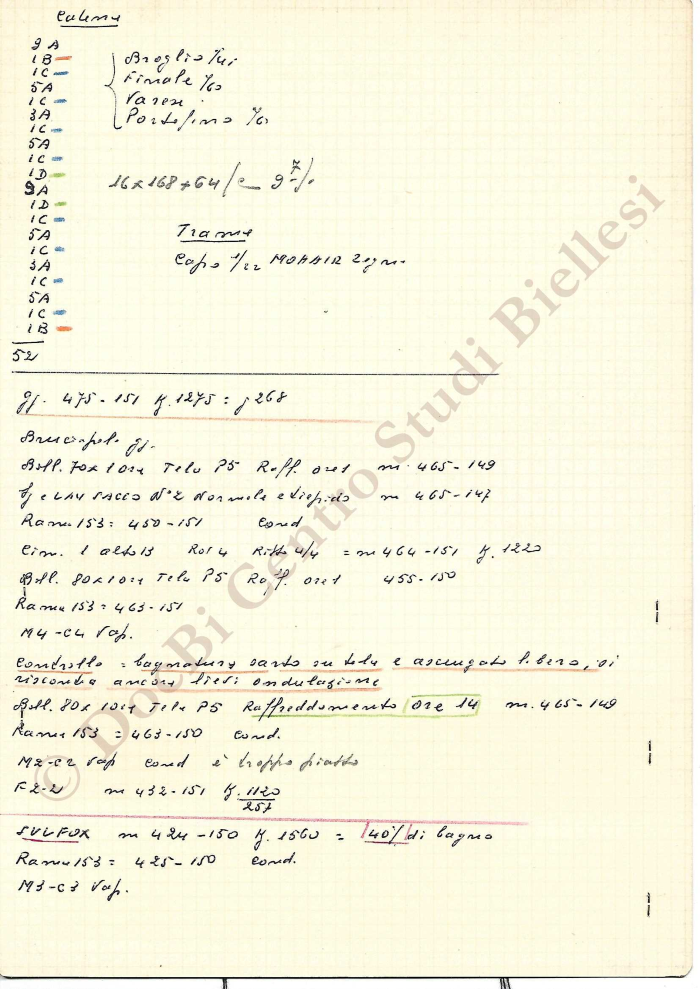 Catena
9 A
1 B
1 C
5 A
1 C
3 A
1 C
5 A
1 C
1 D
9 A
1 D
1 C
5 A
1 C
3 A
1 C
5 A
1 C
1 B
52
Broglio
Finale 1/60
Varese
Portofino
16 x 168 + 64
Trama
Capo 1/22 MOHAIR Legna
gj. 475-151 K.1275 = g 268
gj.
Boll. 70x1 ora Telo P5 Raff. ore1 m. 465-149
LAV SACCO N°2 Normale e tiepido m 465-147
Rama 153 = 450-151 Cond
Cim. 1 alto 13 Rot 4 Ritto 4/4 = m 464-151 K. 1220
Boll. 80x1 ora Telo P5 Raff. ore1 455-150
Rama 153 = 463-151
M4-C4 Vap.
Controllo = bagnatura sarto su tela e asciugato libero, si
riscontra ancora lievi ondulazione
Boll. 80x 1 ora Telo P5 Raffreddamento ore 14 m. 465-149
Rama 153 = 463-150 Cond.
M2-C2 Vap Cond è troppo piatto
F2-2 m 432-151 K. 1120
257
SULFOX m 424-150 K. 1560 = 40% di bagno
Rama 153 = 425-150 Cond.
M3-C3 Vap.
© DocBi Centro Studi Biellesi